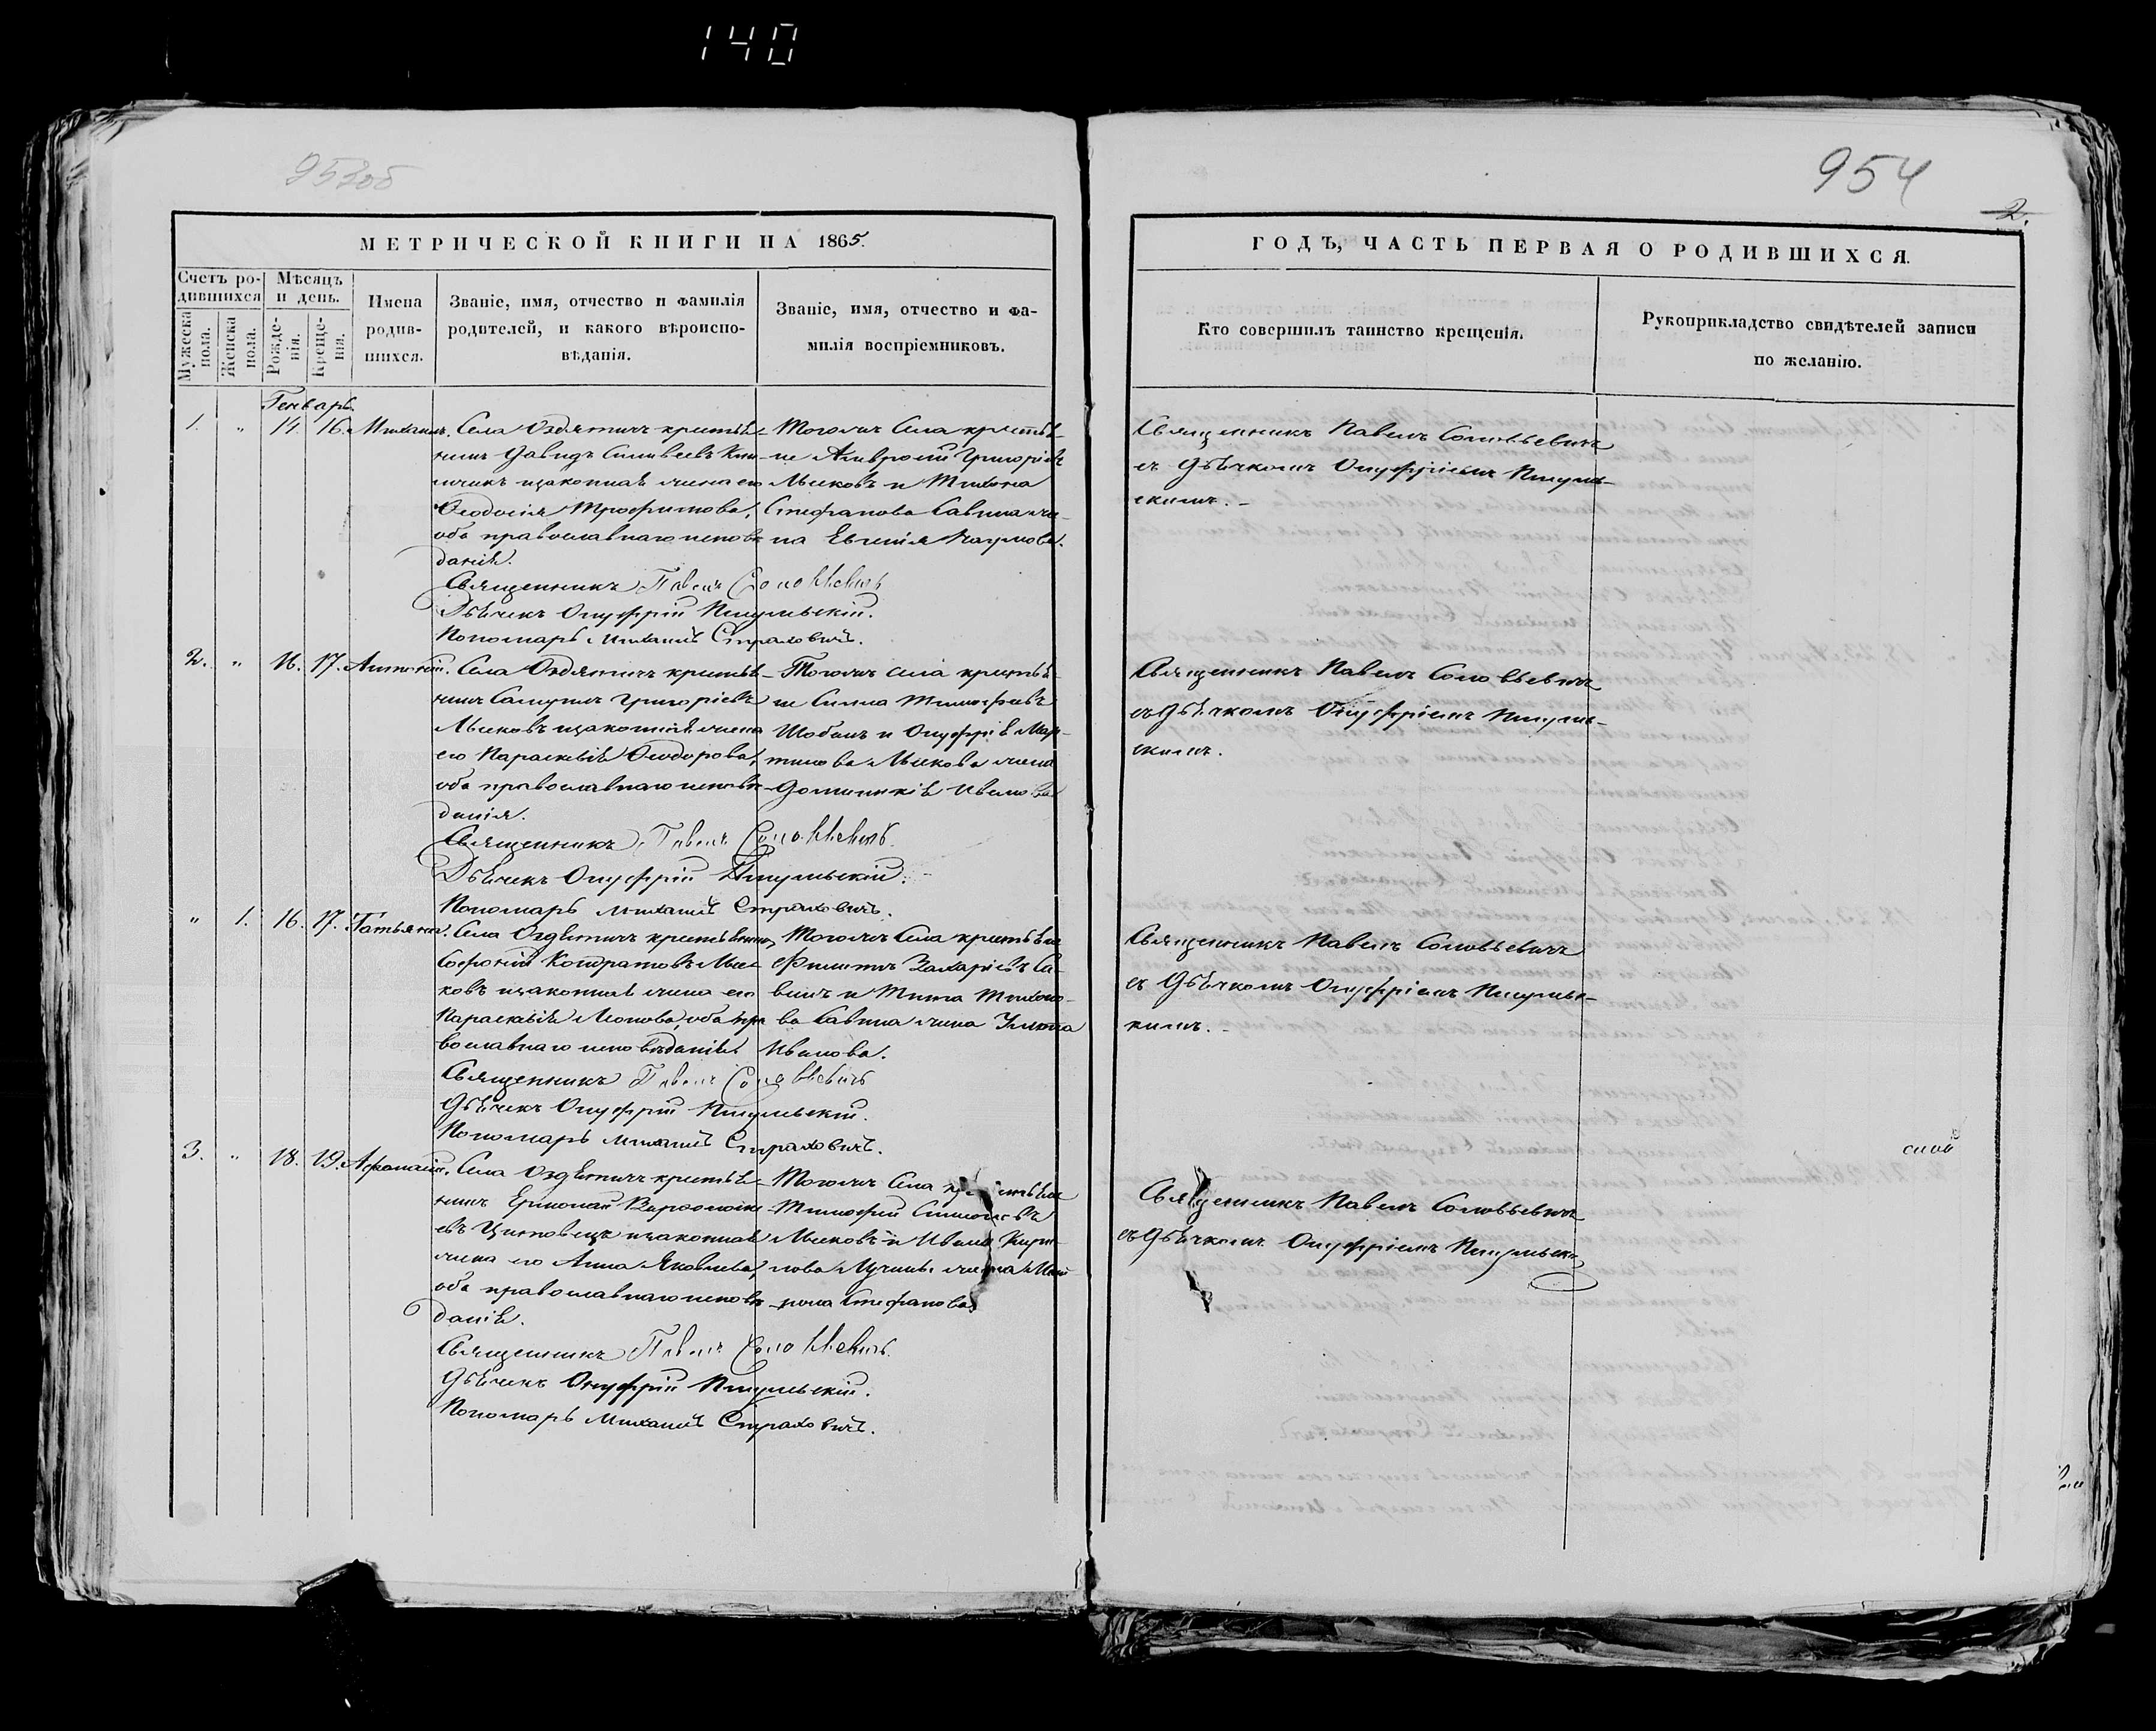 140
953об
954
2.
МЕТРИЧЕСКОЙ КНИГИ НА 1865.
ГОДЪ, ЧАСТЬ ПЕРВАЯ О РОДИВШИХСЯ.
Счетъ ро-
дившихся
Мужеска
пола.
Женска
пола.
Мѣсяцъ
и день.
Рожде-
нія.
Креще-
нія.
Имена
родив-
шихся.
Званіе, имя, отчество и фамилія
родителей, и какого вѣроиспо-
вѣданія.
Званіе, имя, отчество и фа-
милія воспріемниковъ.
Кто совершилъ таинство крещенія.
Рукоприкладство свидѣтелей записи
по желанію.
Генварь.
1. " 14. 16. Михаилъ.
Села Оздятичь крестья-
нинъ Давидъ
и законная жена его
Ѳеодосія Трофимова,
оба православнаго исповѣ-
данія.
Священникъ Павелъ Соловьевичъ
Дьячекъ Онуфрій
Пономарь Михаилъ Страховичъ.
Тогожъ села крестья-
не Амвросій Григорьевъ
Мысковъ и Тихона
Стефанова Савина же-
на Евгенія Наумова.
Священникъ Павелъ Соловьевичъ
съ Дьячкомъ Онуфріемъ
скимъ.
2. " 16. 17. Антоній.
Села Оздятичь крестья-
нинъ Самуилъ Григорьевъ
Мысковъ и законная жена
его Параскевія Ѳеодорова,
оба православнаго исповѣ-
данія.
Священникъ Павелъ Соловьевичъ.
Дьячекъ Онуфрій
Пономарь Михаилъ Страховичъ.
Тогожъ села крестья-
не Симна Тимофеевъ
Шобанъ и Онуфрія Мар-
тинова Мыскова жена
Доминикія Иванова
Священникъ Павелъ Соловьевичъ
съ Дьячкомъ Онуфріемъ
скимъ.
" 1. 16. 17. Татьяна.
Села Оздятичь крестьянинъ
Софроній Кондратовъ Мыс-
ковъ и законная жена его
Параскевія Леонова, оба пра-
вославнаго исповѣданія
Священникъ Павелъ Соловьевичъ
Дьячекъ Онуфрій
Пономарь Михаилъ Страховичъ.
Тогожъ села крестьяне
Филиппъ Захаріевъ Са-
винъ и Тита Тихоно-
ва Савина жена
Иванова.
Священникъ Павелъ Соловьевичъ
съ Дьячкомъ Онуфріемъ
кимъ.
3. " 18. 19. Афанасій.
Села Оздятичь крестья-
нинъ Ермолай Варфоломе-
евъ и законная
жена его Анна Яковлева,
оба православнаго исповѣ-
данія.
Священникъ Павелъ Соловьевичъ.
Дьячекъ Онуфрій
Пономарь Михаилъ Страховичъ.
Тогожъ села крестьяне
Тимофей Симоновъ
Мысковъ и Ивана Кири-
лова жена Мат-
рона Стефанова
Священникъ Павелъ Соловьевичъ
съ Дьячкомъ Онуфріемъ